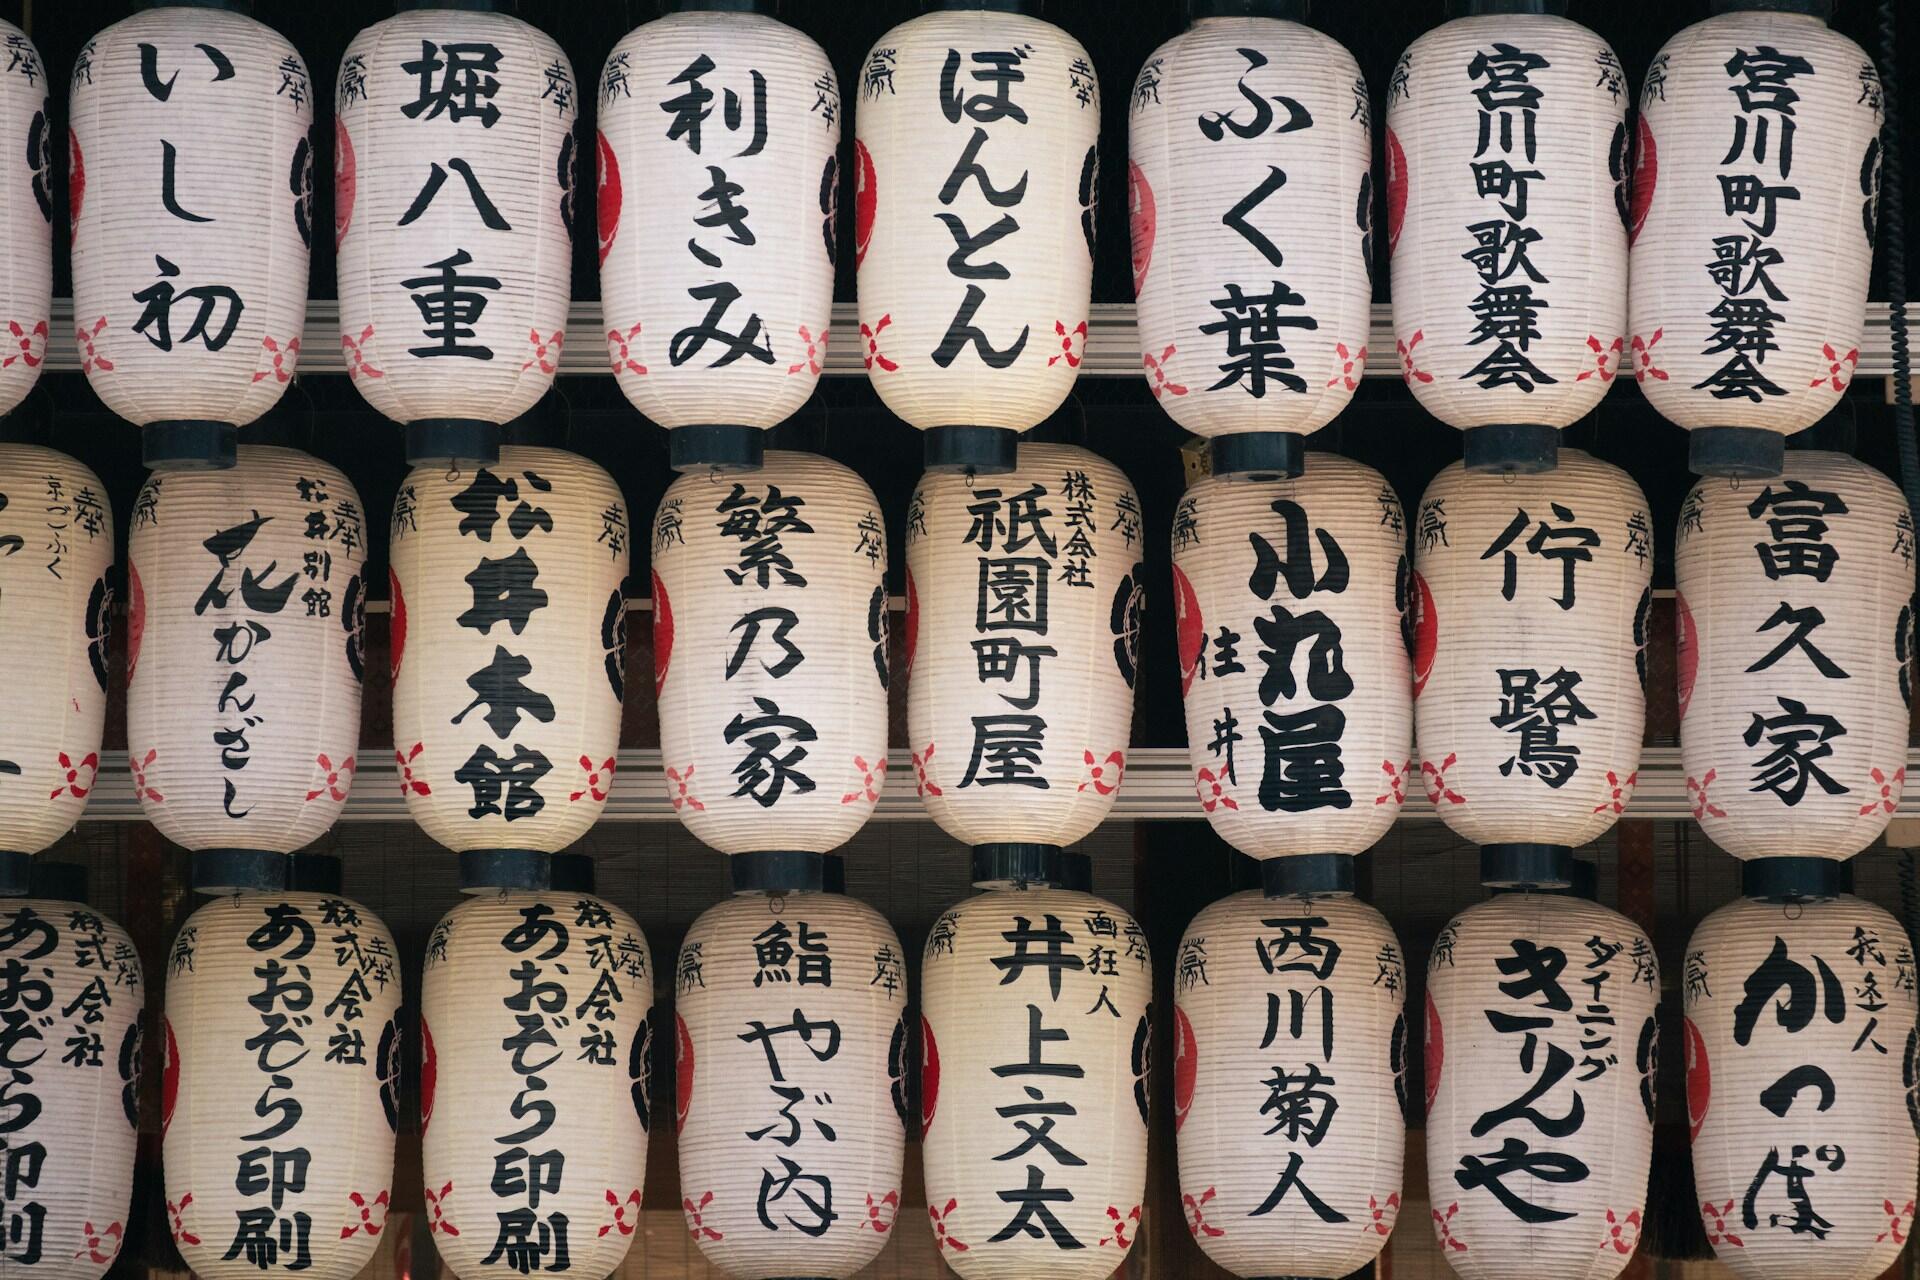 いし初
堀八重
利きみ
ぼんとん
ふく葉
宮川町歌舞会
宮川町歌舞会
京ごふく
松井別館
花かんざし
松井本館
繁乃家
株式会社
祇園町屋
小丸屋
住井
佇鷺
富久家
株式会社
あおぞら印刷
株式会社
あおぞら印刷
株式会社
あおぞら印刷
鮨
やぶ内
画狂人
井上文太
西川菊人
ダイニング
きりんや
我逢人
かっぽ